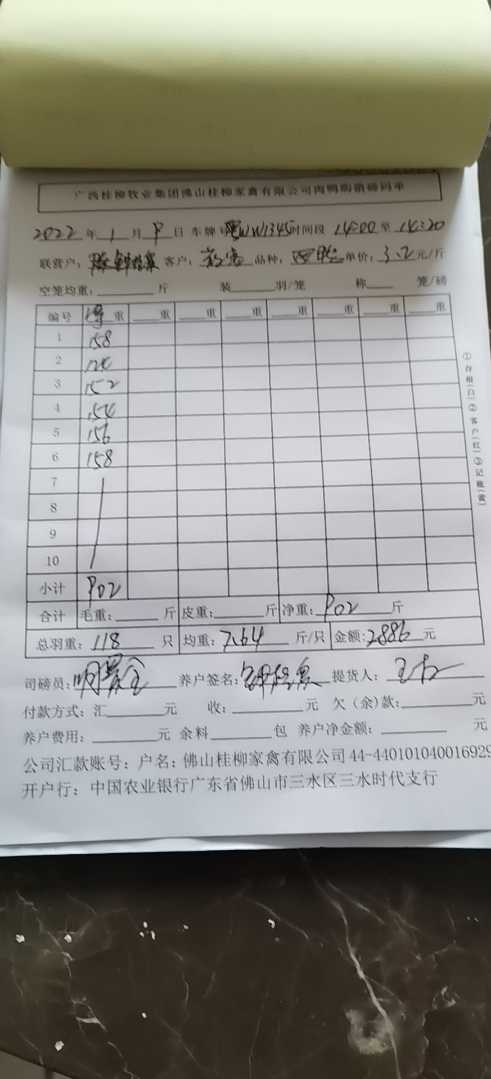 广西桂柳牧业集团佛山桂柳家禽有限公司肉鸭购销磅码单
2022年1月9日 车牌号 WW1345 时间段 14:00至14:20
联营户： 客户： 品种： 单价：3.2元/斤
空笼均重：斤 装羽/笼 称笼/磅
编号 净重 重 重 重 重 重 重
1 158
2 124
3 152
4 154
5 156
6 158
7
8
9
10
小计 902
合计 毛重：斤 皮重：斤 净重：902斤
总羽重：118只 均重：7.64斤/只 金额：2886元
司磅员： 养户签名： 提货人：
付款方式：汇元 收：元 欠（余）款：元
养户费用：元 余料包 养户净金额：元
公司汇款账号：户名：佛山桂柳家禽有限公司 44-440101040016929
开户行：中国农业银行广东省佛山市三水区三水时代支行
①存根(白)②客户(红)③记账(黄)